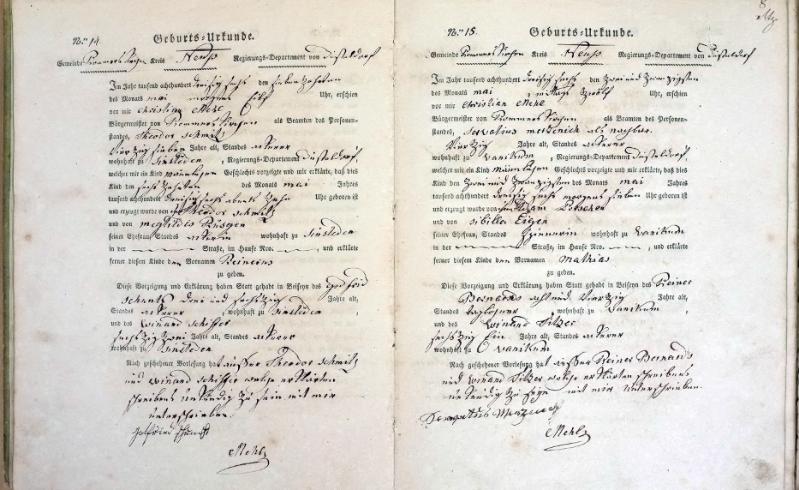 Nro. 14.
Geburts-Urkunde.
Gemeinde Rommerskirchen Kreis Neuß Regierungs-Departement von Düsseldorf
Im Jahr tausend achthundert dreisig sechs den siebenzehnten
des Monats mai morgens Eilf Uhr, erschien
vor mir christian Mehl
Bürgermeister von Rommerskirchen als Beamten des Personen-
standes, Theodor schmitz
vierzig sieben Jahre alt, Standes ackerer
wohnhaft zu Sinsteden, Regierungs-Departement Düsseldorf,
welcher mir ein Kind männlichen Geschlechts vorzeigte und mir erklärte, daß dies
Kind den sechszehnten des Monats mai Jahres
tausend achthundert dreisig sechs abends zehn Uhr geboren ist
und erzeugt wurde von ihm Theodor schmitz
und von
seiner Ehefrau, Standes ackerin wohnhaft zu Sinsteden
in der Straße, im Hause Nro. , und erklärte
ferner diesem Kinde den Vornamen Reinerus
zu geben.
Diese Vorzeigung und Erklärung haben Statt gehabt in Beiseyn des Godfried
drei und sechszig Jahre alt,
Standes ackerer, wohnhaft zu Sinsteden,
und des winand schiffer
sechszig zwei Jahre alt, Standes ackerer
wohnhaft zu Sinsteden
Nach geschehener Vorlesung hat ausser Theodor schmitz
und winand schiffer welche erklärten
schreibens unkundig zu sein mit mir
unterschrieben.
Mehl
Nro. 15.
Geburts-Urkunde.
Gemeinde Rommerskirchen Kreis Neuß Regierungs-Departement von Düsseldorf
Im Jahr tausend achthundert dreisig sechs den zwei und zwanzigsten
des Monats mai mittags zwölf Uhr, erschien
vor mir christian Mehl
Bürgermeister von Rommerskirchen als Beamten des Personen-
standes, Servatius als nachbar
vierzig Jahre alt, Standes ackerer
wohnhaft zu vanikum, Regierungs-Departement Düsseldorf,
welcher mir ein Kind männlichen Geschlechts vorzeigte und mir erklärte, daß dies
Kind den zwei und zwanzigsten des Monats mai Jahres
tausend achthundert dreisig sechs morgens sieben Uhr geboren ist
und erzeugt wurde von
und von sibilla
seiner Ehefrau, Standes wohnhaft zu vanikum
in der Straße, im Hause Nro. , und erklärte
ferner diesem Kinde den Vornamen mathias
zu geben.
Diese Vorzeigung und Erklärung haben Statt gehabt in Beiseyn des Reiner
Bernards acht und vierzig Jahre alt,
Standes taglöhner, wohnhaft zu vanikum,
und des winand
sechszig Ein Jahre alt, Standes ackerer
wohnhaft zu vanikum
Nach geschehener Vorlesung hat ausser Reiner Bernards
und winand welche erklärten schreibens
unkundig zu sein mit mir unterschrieben.
Mehl